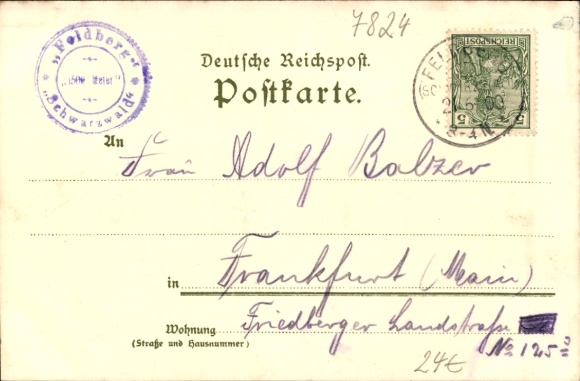 7824
„Feldberg“
1500 Meter
„Schwarzwald“
Deutsche Reichspost.
Postkarte.
REICHSPOST
5 5
8-9 N
An Frau Adolf Balzer
in Frankfurt (Main)
Wohnung Friedberger Landstraße
(Straße und Hausnummer) No 125
24€